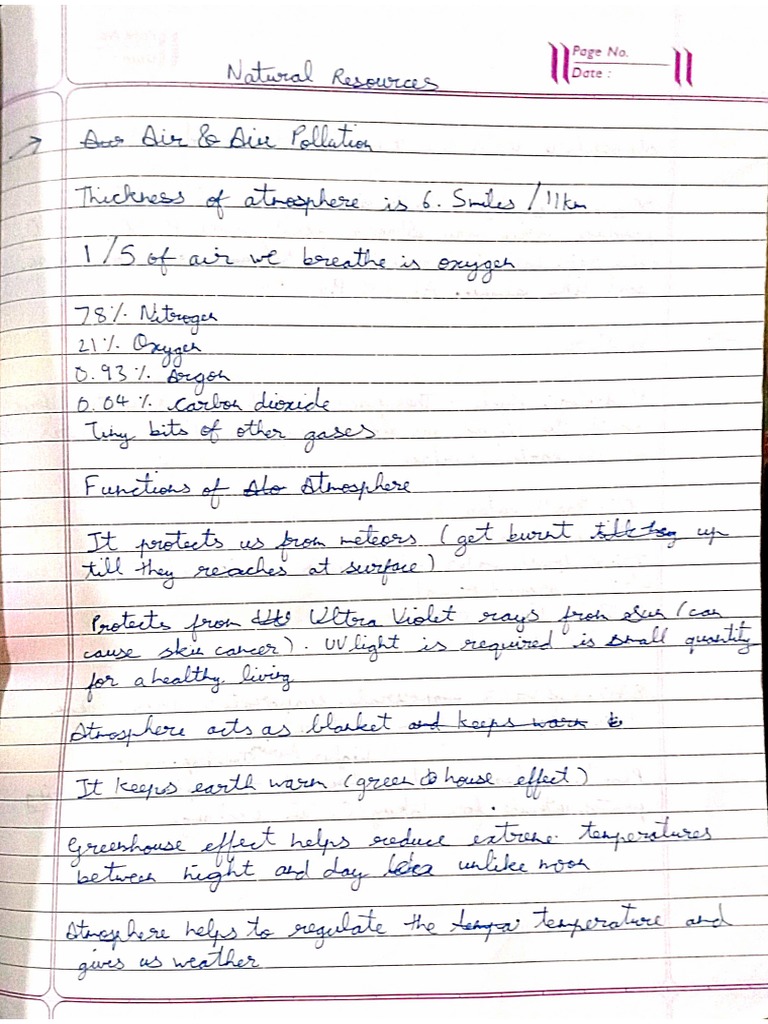 Page No.
Date :
Natural Resources
Air & Air Pollution
Thickness of atmosphere is 6.5miles /11km
1/5 of air we breathe is oxygen
78% Nitrogen
21% Oxygen
0.93% Argon
0.04% Carbon dioxide
Tiny bits of other gases
Functions of Atmosphere
It protects us from meteors (get burnt up
till they reaches at surface)
Protects from Ultra Violet rays from sun (can
cause skin cancer). UV light is required is small quantity
for a healthy living
Atmosphere acts as blanket and keeps warm
It keeps earth warm (green house effect)
Greenhouse effect helps reduce extreme temperatures
between night and day unlike moon
Atmosphere helps to regulate the temperature and
gives us weather